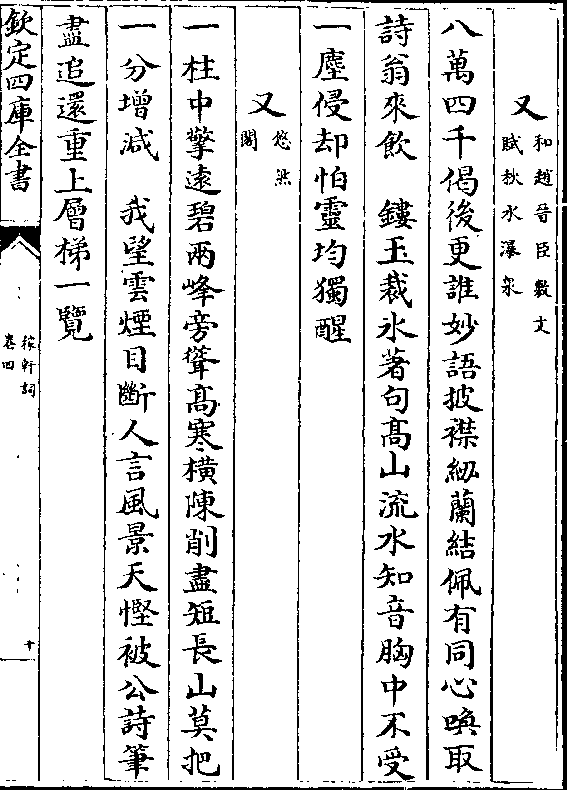 又 和趙晉臣敷文
賦秋水瀑泉
八萬四千偈後更誰妙語披襟紉蘭結佩有同心喚取
詩翁來飲　鏤玉裁氷著句髙山流水知音胸中不受
一塵侵却怕靈均獨醒
又 悠然
閣
一柱中擎遠碧兩峰旁聳髙寒橫陳削盡短長山莫把
一分增減　我望雲煙目斷人言風景天慳被公詩筆
盡追還重上層梯一覽
欽定四庫全書
稼軒詞
卷四
十